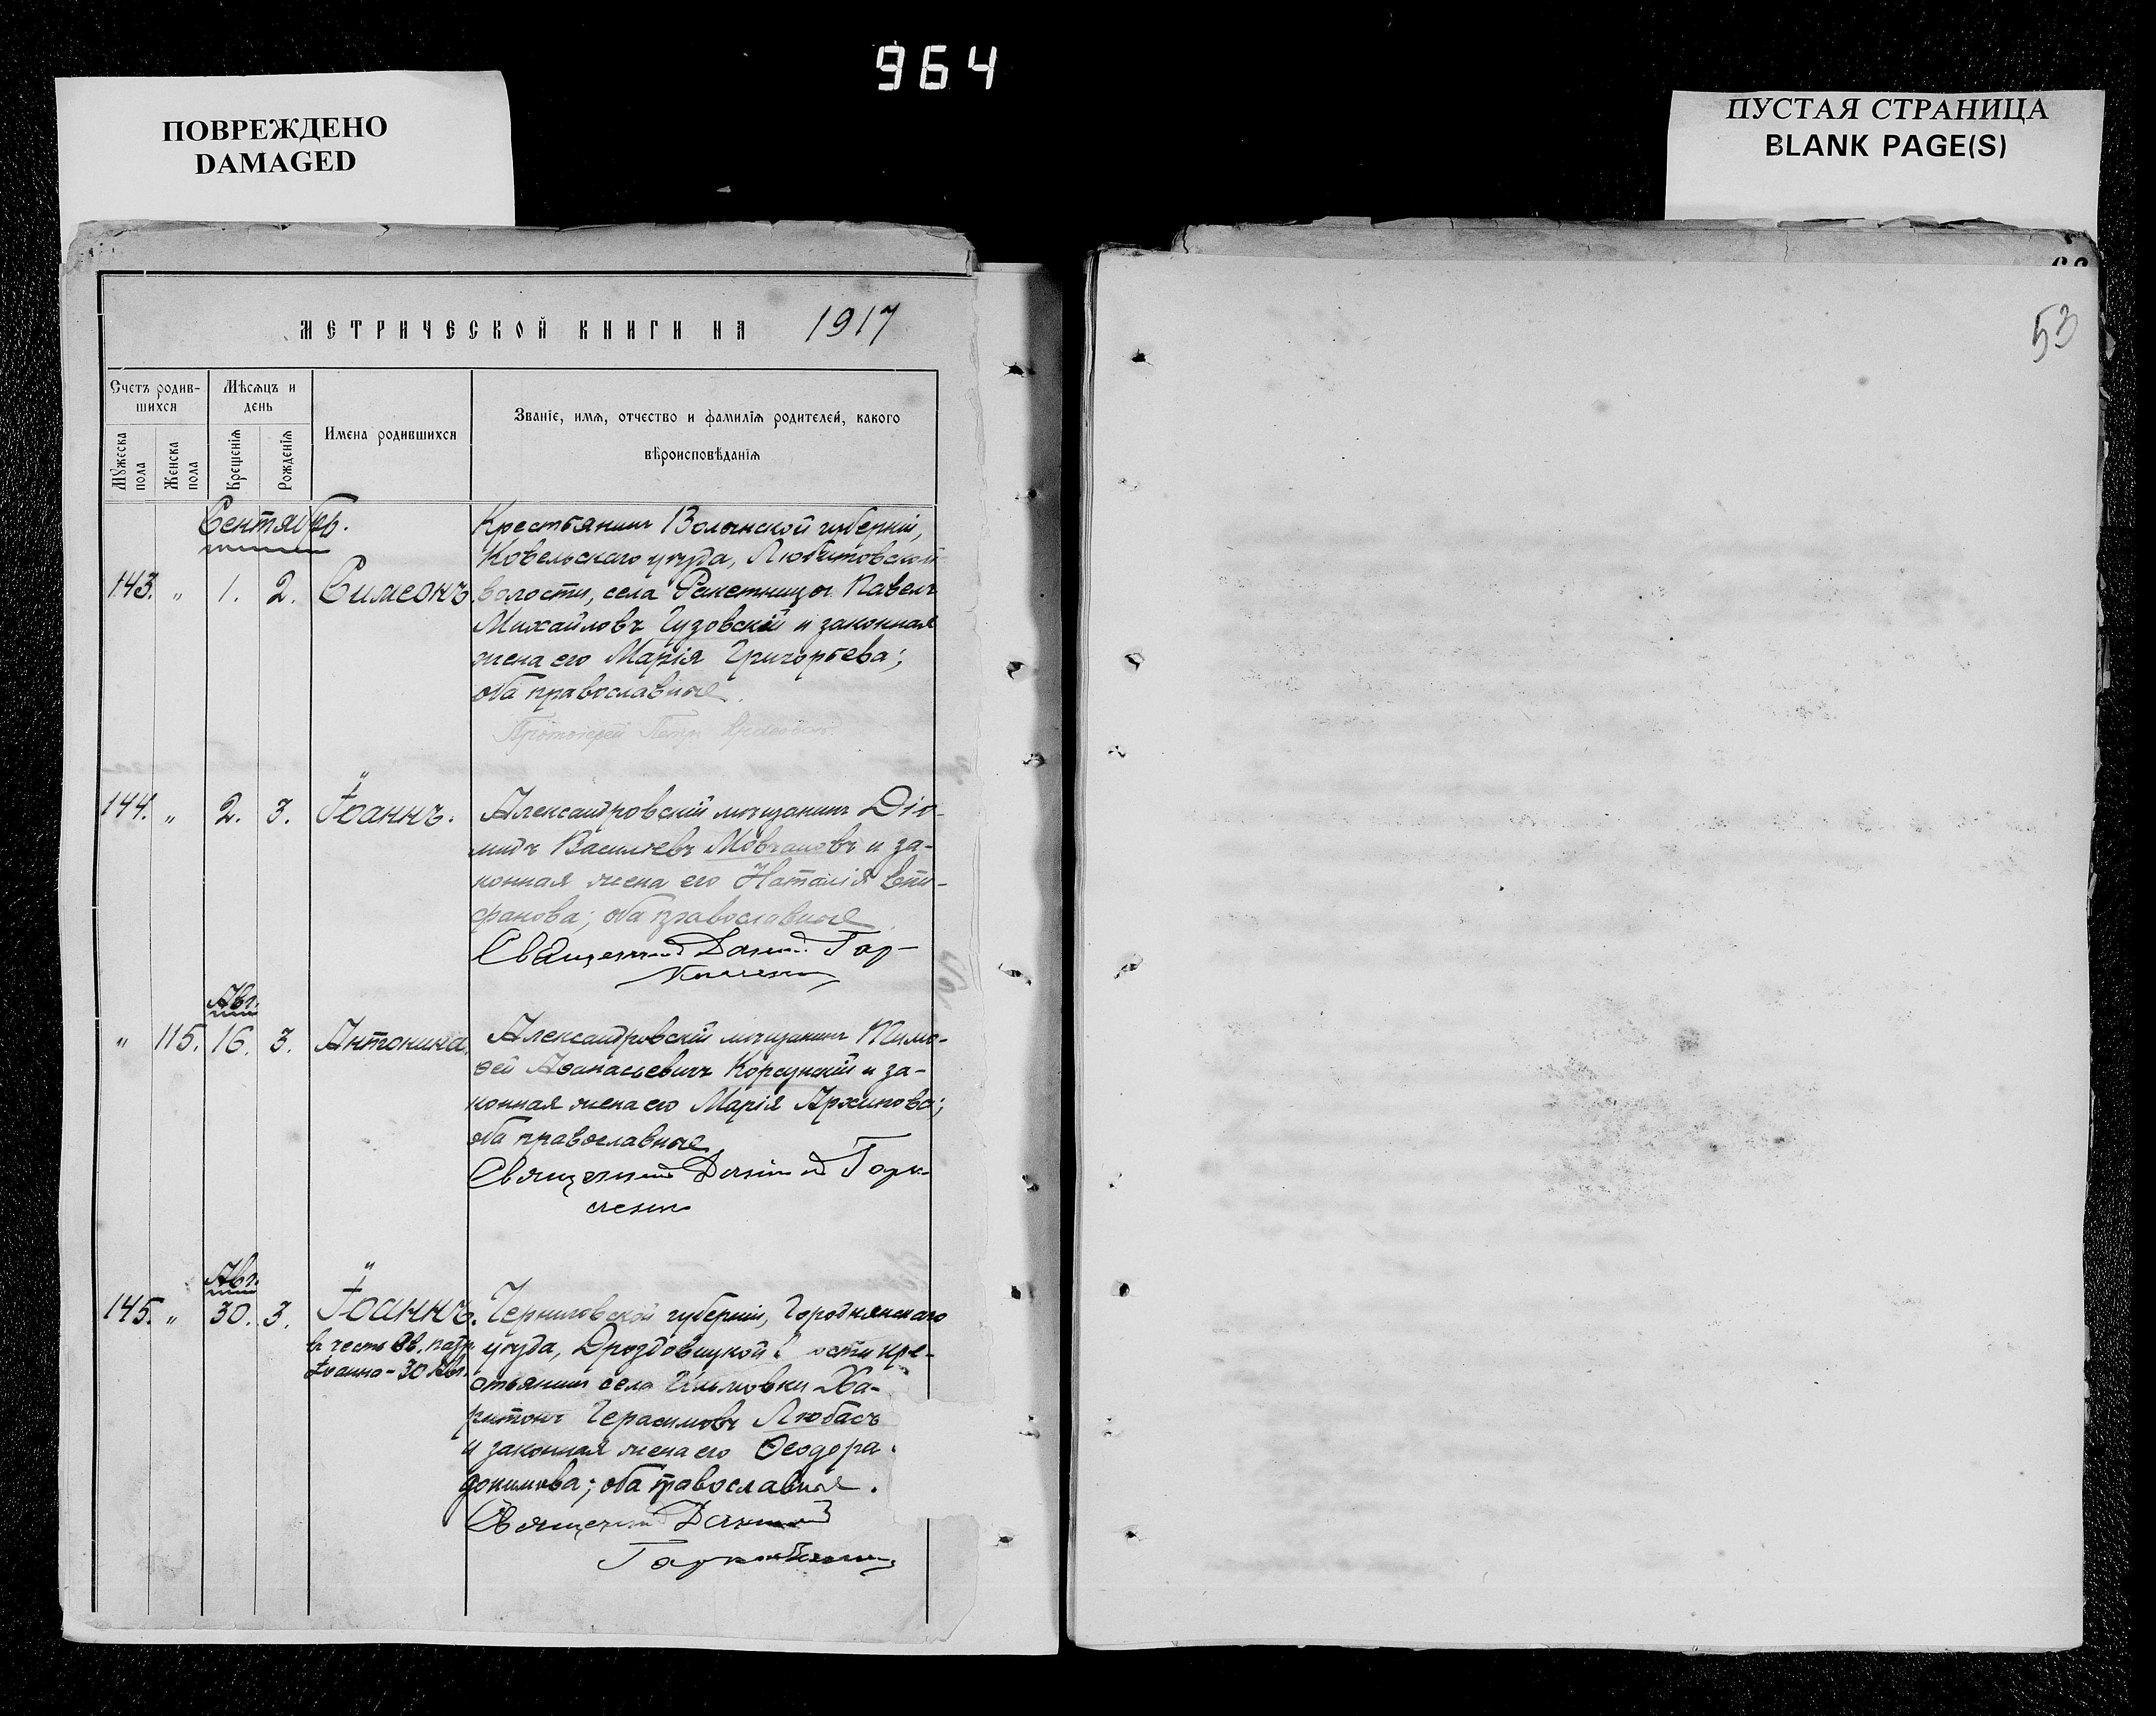 964
ПОВРЕЖДЕНО
DAMAGED
ПУСТАЯ СТРАНИЦА
BLANK PAGE(S)
МЕТРИЧЕСКОЙ КНИГИ НА 1917
53
Счетъ родив-
шихся
Мѣсяцъ и
день
Имена родившихся
Званіе, имя, отчество и фамилія родителей, какого
вѣроисповѣданія
Мужеска пола
Женска пола
Крещенія
Рожденія
Сентябрь.
143. " 1. 2. Симеонъ.
Крестьянинъ Волынской губерніи,
Ковельскаго уѣзда, Любитовской
волости, села Ракетницы Павелъ
Михайловъ Гузовскій и законная
жена его Марія Григорьева;
оба православные.
Протоіерей Петръ
144. " 2. 3. Іоаннъ.
Александровскій мѣщанинъ Діо-
мидъ Васильевъ Мовчановъ и за-
конная жена его Наталія Епи-
фанова; оба православные
Священникъ Гор-
Авг.
" 115. 16. 3. Антонина.
Александровскій мѣщанинъ Тимо-
ѳей Аѳанасьевичъ Корсунскій и за-
конная жена его Марія Архипова;
оба православные
Священникъ
Авг.
145. " 30. 3. Іоаннъ.
въ честь св. патр.
Іоанна - 30 Авг.
Черниговской губерніи, Городнянскаго
уѣзда, Дроздовицкой ости кре-
стьянинъ села Ильмовки Ха-
ритонъ Герасимовъ Любасъ
и законная жена его Ѳеодора
докимова; оба православные.
Священникъ